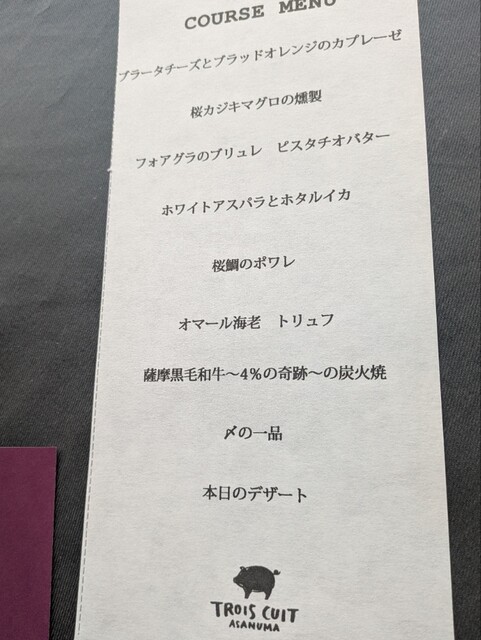 COURSE MENU
ブラータチーズとブラッドオレンジのカプレーゼ
桜カジキマグロの燻製
フォアグラのブリュレ　ピスタチオバター
ホワイトアスパラとホタルイカ
桜鯛のポワレ
オマール海老　トリュフ
薩摩黒毛和牛～4%の奇跡～の炭火焼
〆の一品
本日のデザート
TROIS CUIT
ASANUMA